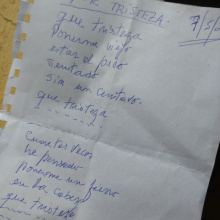 TRISTEZA. 7/5/
que tristeza
Ponerme viejo
estar al pico
sentado
sin un centavo.
que tristeza
Cuantas veces
he pensado
ponerme un
en la cabeza
que tristeza